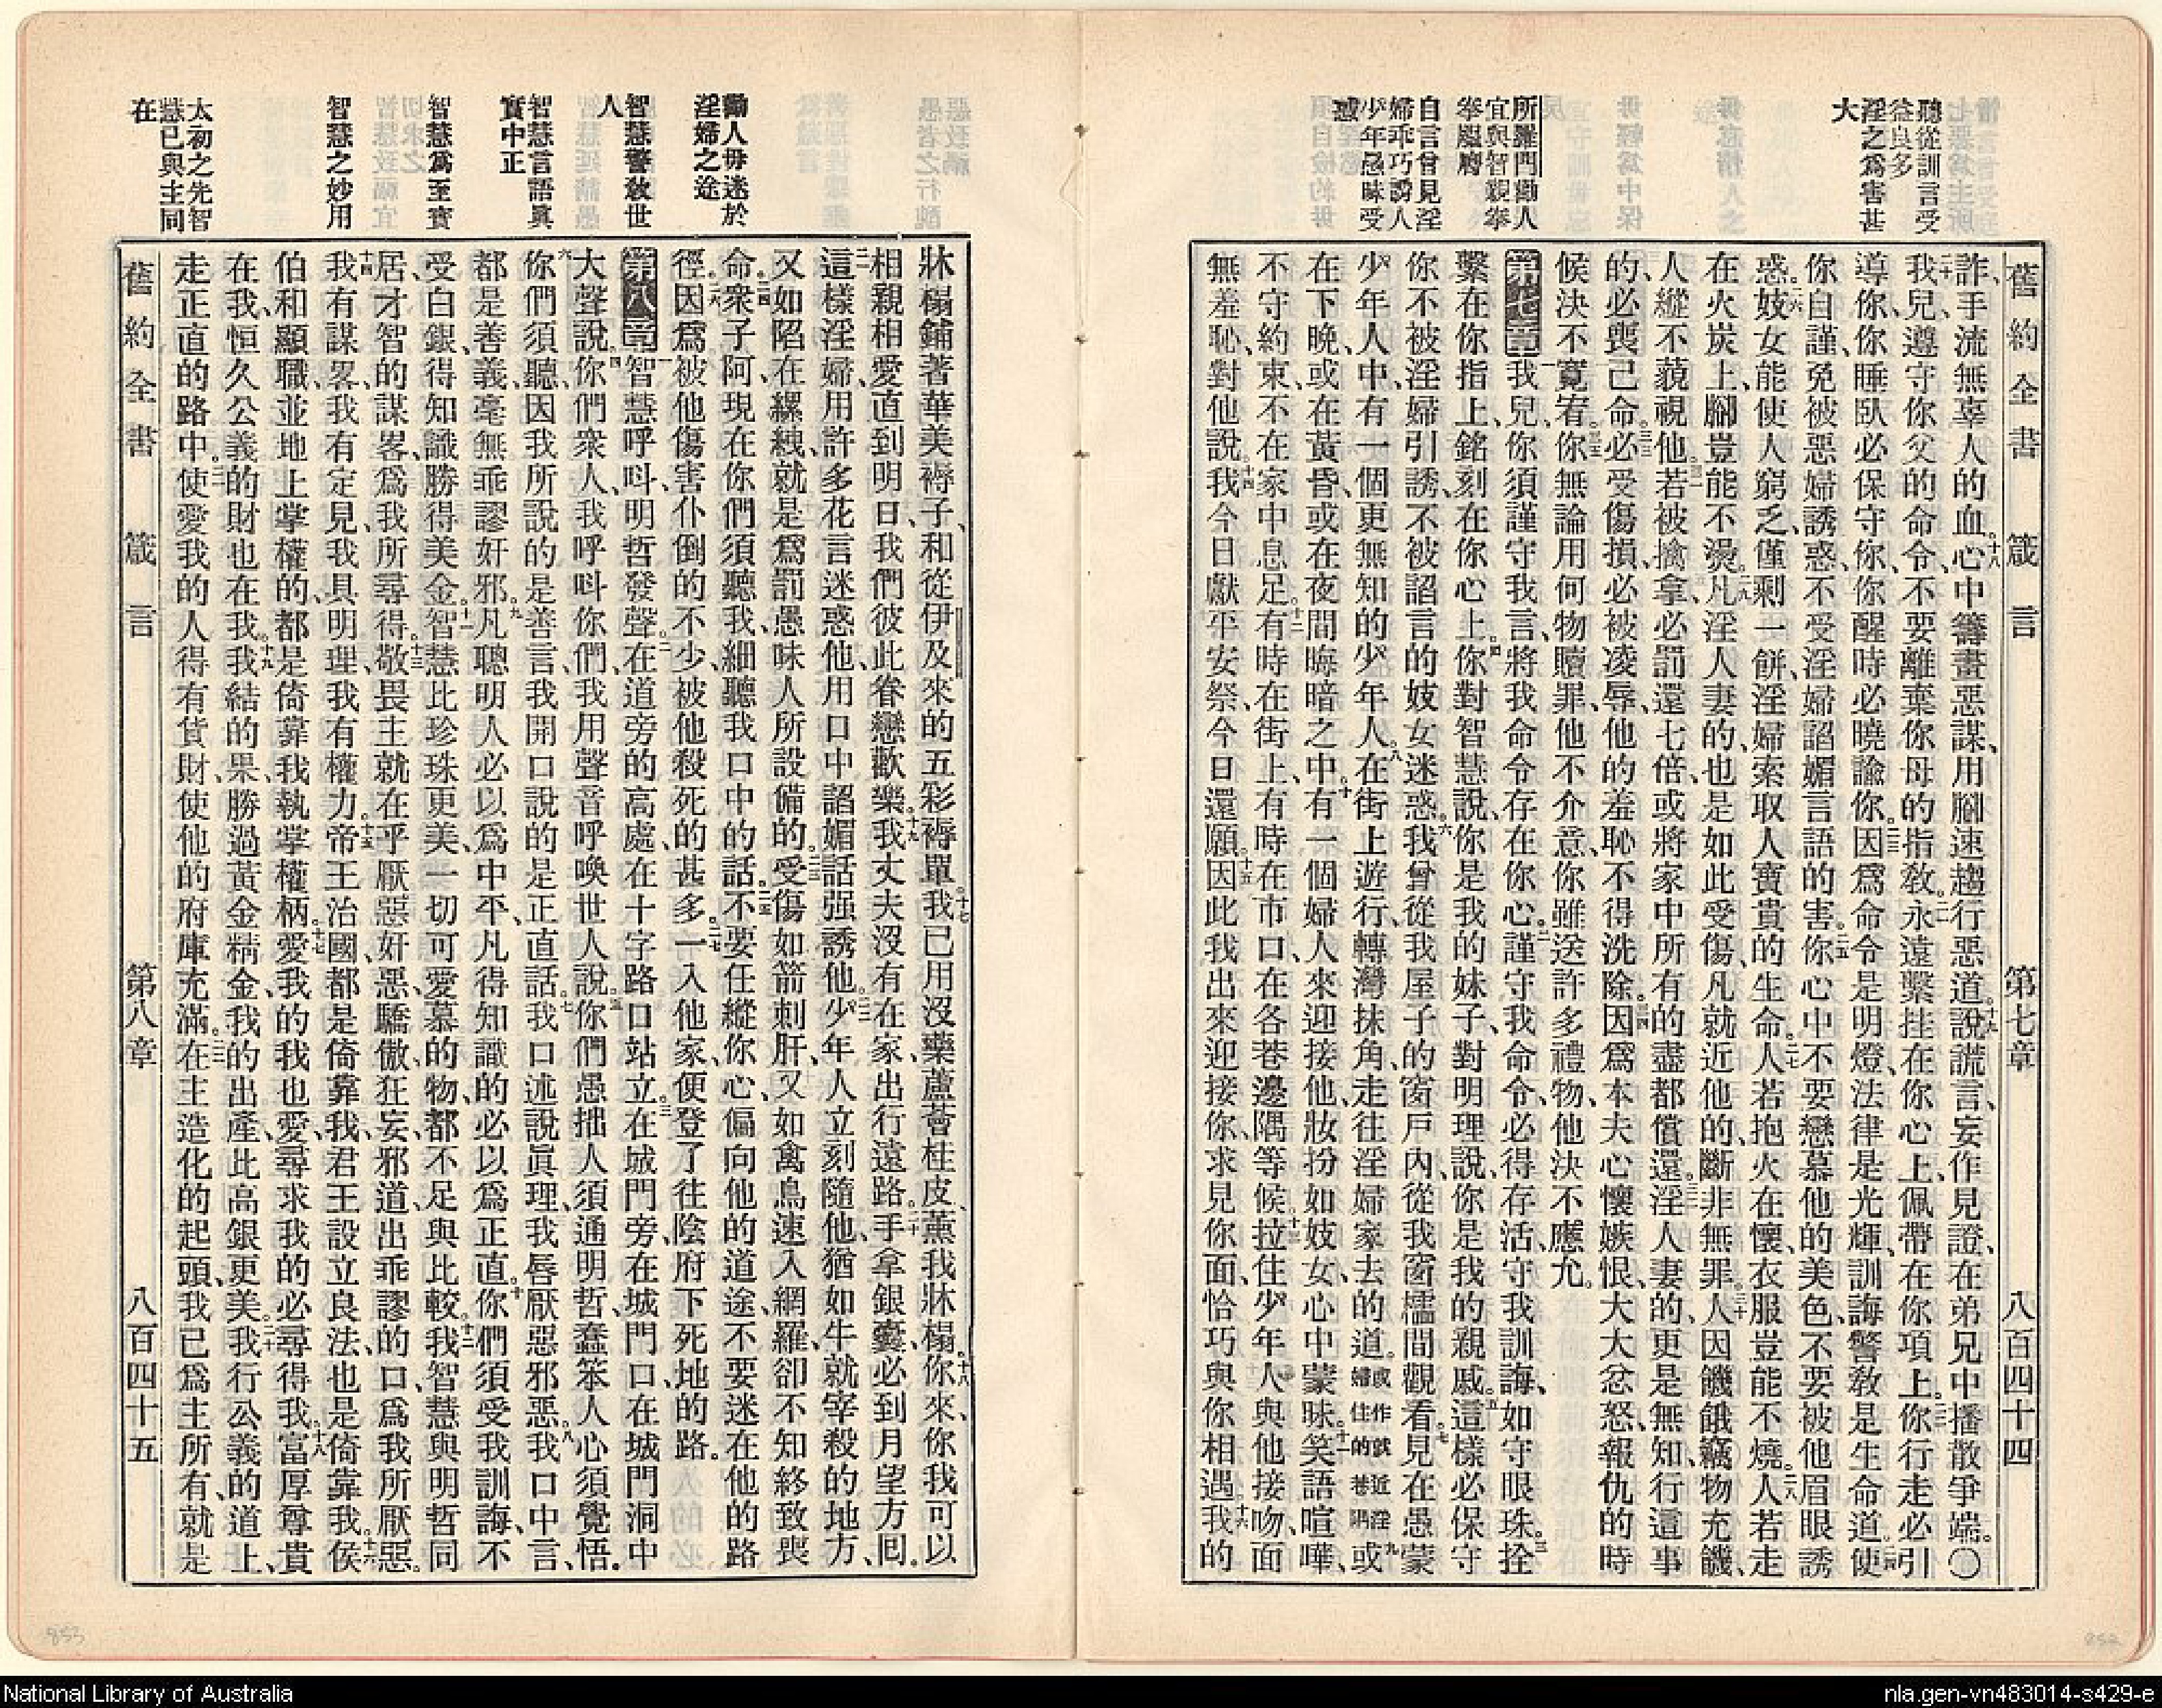 聽從訓言受
益良多
淫之爲害甚
大
所羅門勸人
宜與智親摯
摯繼膚
自言曾見淫
婦乖巧誘人
少年愚昧受
惑
舊約全書 箴言 第七章 八百四十四
詐、手流無辜人的血。十八心中籌畫惡謀、用腳速趨行惡道。十九說謊言、妄作見證、在弟兄中播散爭端。〇
二十我兒、遵守你父的命令、不要離棄你母的指敎。二一永遠繫挂在你心上、佩帶在你項上。二二你行走必引
導你、你睡臥必保守你、你醒時必曉諭你。二三因爲命令是明燈、法律是光輝、訓誨警敎是生命道。二四使
你自謹、免被惡婦誘惑、不受淫婦諂媚言語的害。二五你心中不要戀慕他的美色、不要被他眉眼誘
惑。二六妓女能使人窮乏、僅剩一餅、淫婦索取人寶貴的生命。二七人若抱火在懷、衣服豈能不燒。二八人若走
在火炭上、腳豈能不燙。二九凡淫人妻的、也是如此受傷、凡就近他的、斷非無罪。三十人因饑餓竊物充饑、
人縱不藐視他。三一若被擒拿、必罰還七倍、或將家中所有的盡都償還。三二淫人妻的、更是無知、行這事
的、必喪己命。三三必受傷損、必被凌辱、他的羞恥不得洗除。三四因爲本夫心懷嫉恨、大大忿怒、報仇的時
候決不寬宥。三五你無論用何物贖罪、他不介意、你雖送許多禮物、他決不應允。
第七章一我兒、你須謹守我言、將我命令存在你心。二謹守我命令、必得存活、守我訓誨、如守眼珠。三拴
繫在你指上、銘刻在你心上。四你對智慧說、你是我的妹子、對明理說、你是我的親戚。五這樣必保守
你不被淫婦引誘、不被諂言的妓女迷惑。六我曾從我屋子的窗戶內、從我窗櫺間觀看。七見在愚蒙
少年人中、有一個更無知的少年人。八在街上遊行、轉灣抹角、走往淫婦家去的道。或作就近淫婦住的巷隅九或
在下晚、或在黃昏、或在夜間晦暗之中。十有一個婦人來迎接他、妝扮如妓女、心中蒙昧。十一笑語喧嘩、
不守約束、不在家中息足。十二有時在街上、有時在市口、在各巷邊隅等候。十三拉住少年人、與他接吻、面
無羞恥、對他說。十四我今日獻平安祭、今日還願。十五因此我出來迎接你、求見你面、恰巧與你相遇。十六我的
勸人毋迷於
淫婦之途
智慧警敎世
人
智慧言語眞
實中正
智慧爲至寶
智慧之妙用
太初之先智
慧已與主同
在
牀榻鋪著華美褥子、和從伊及來的五彩褥單。十七我已用沒藥蘆薈桂皮、薰我牀榻。十八你來、你我可以
相親相愛直到明日、我們彼此眷戀歡樂。十九我丈夫沒有在家、出行遠路。二十手拿銀囊、必到月望方囘。
二一這樣淫婦、用許多花言迷惑他、用口中諂媚話强誘他。二二少年人立刻隨他、猶如牛就宰殺的地方、
又如陷在縲絏、就是爲罰愚昧人所設備的。二三受傷如箭刺肝、又如禽鳥速入網羅、卻不知終致喪
命。二四衆子阿、現在你們須聽我、細聽我口中的話。二五不要任縱你心偏向他的道途、不要迷在他的路
徑。二六因爲被他傷害仆倒的不少、被他殺死的甚多。二七一入他家、便登了往陰府下死地的路。
第八章一智慧呼呌、明哲發聲。二在道旁的高處、在十字路口站立。三在城門旁、在城門口、在城門洞中
大聲說。四你們衆人、我呼呌你們、我用聲音呼喚世人說。五你們愚拙人須通明哲、蠢笨人心須覺悟。
六你們須聽、因我所說的是善言、我開口說的是正直話。七我口述說眞理、我唇厭惡邪惡。八我口中言、
都是善義、毫無乖謬奸邪。九凡聰明人必以爲中平、凡得知識的必以爲正直。十你們須受我訓誨、不
受白銀、得知識勝得美金。十一智慧比珍珠更美、一切可愛慕的物、都不足與比較。十二我智慧與明哲同
居、才智的謀畧、爲我所尋得。十三敬畏主就在乎厭惡奸惡、驕傲狂妄、邪道、出乖謬的口、爲我所厭惡。
十四我有謀畧、我有定見、我具明理、我有權力。十五帝王治國都是倚靠我、君王設立良法也是倚靠我。十六侯
伯和顯職、並地上掌權的、都是倚靠我執掌權柄。十七愛我的我也愛、尋求我的必尋得我。十八富厚尊貴
在我、恒久公義的財也在我。十九我結的果、勝過黃金精金、我的出產、比高銀更美。二十我行公義的道上、
走正直的路中。二一使愛我的人得有貨財、使他的府庫充滿。二二在主造化的起頭、我已爲主所有、就是
舊約全書 箴言 第八章 八百四十五
852
853
National Library of Australia
nla.gen-vn483014-s429-e